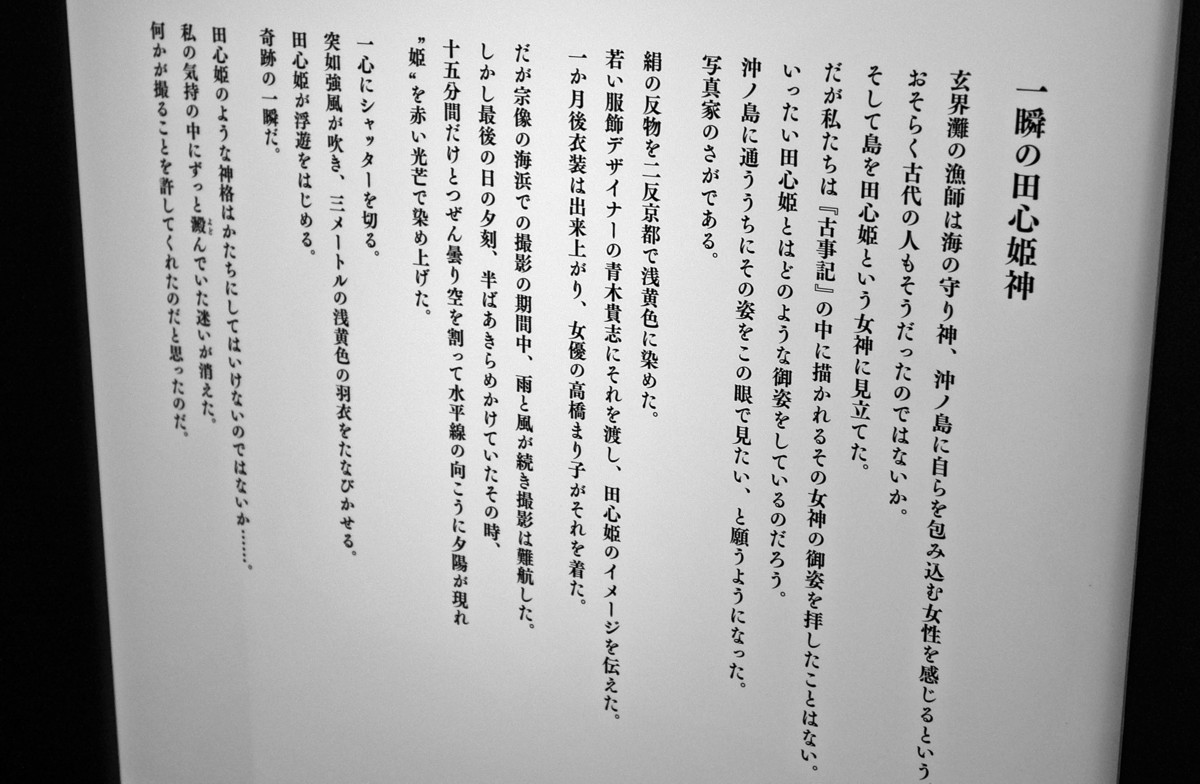 一瞬の田心姫神
玄界灘の漁師は海の守り神、沖ノ島に自らを包み込む女性を感じるという
おそらく古代の人もそうだったのではないか。
そして島を田心姫という女神に見立てた。
だが私たちは『古事記』の中に描かれるその女神の御姿を拝したことはない。
いったい田心姫とはどのような御姿をしているのだろう。
沖ノ島に通ううちにその姿をこの眼で見たい、と願うようになった。
写真家のさがである。
絹の反物を二反京都で浅黄色に染めた。
若い服飾デザイナーの青木貴志にそれを渡し、田心姫のイメージを伝えた。
一か月後衣装は出来上がり、女優の高橋まり子がそれを着た。
だが宗像の海浜での撮影の期間中、雨と風が続き撮影は難航した。
しかし最後の日の夕刻、半ばあきらめかけていたその時、
十五分間だけとつぜん曇り空を割って水平線の向こうに夕陽が現れ
”姫“を赤い光芒で染め上げた。
一心にシャッターを切る。
突如強風が吹き、三メートルの浅黄色の羽衣をたなびかせる。
田心姫が浮遊をはじめる。
奇跡の一瞬だ。
田心姫のような神格はかたちにしてはいけないのではないか……。
私の気持の中にずっと澱んでいた迷いが消えた。
何かが撮ることを許してくれたのだと思ったのだ。